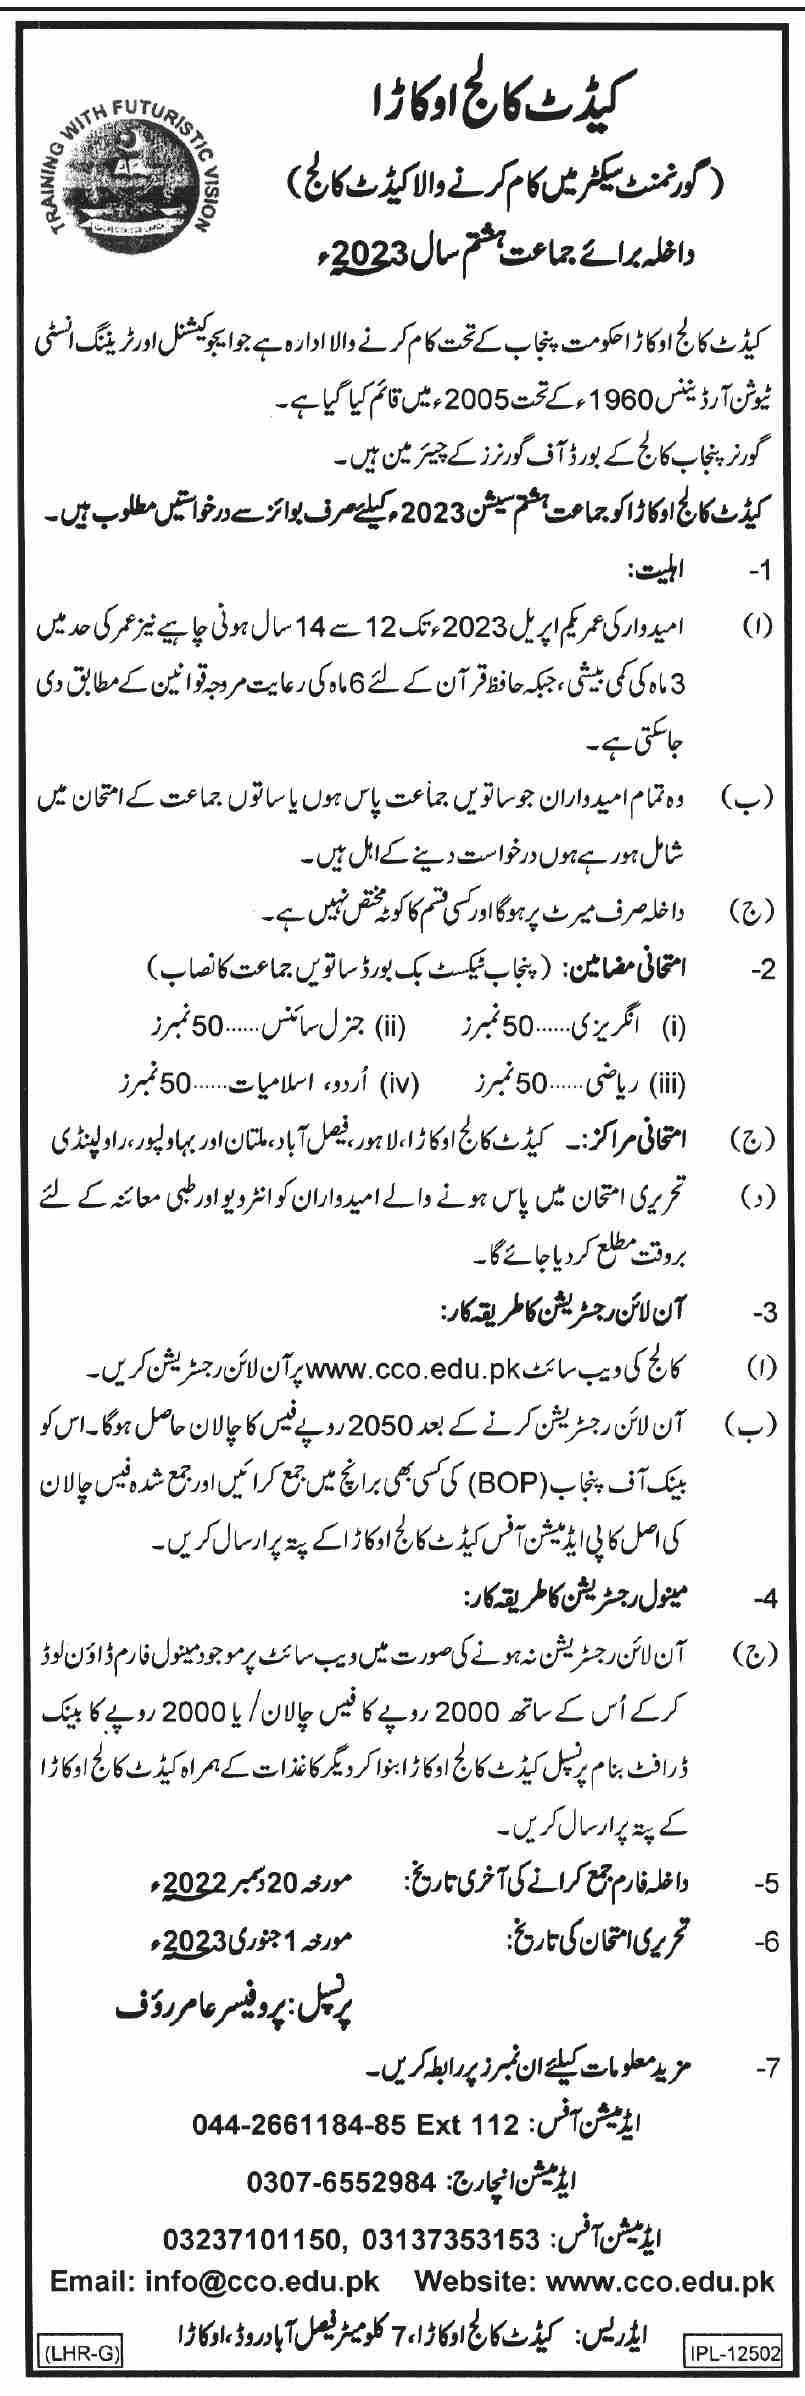 TRAINING WITH FUTURISTIC VISION
کیڈٹ کالج اوکاڑا
(گورنمنٹ سیکٹر میں کام کرنے والا کیڈٹ کالج)
داخلہ برائے جماعت ہشتم سال 2023ء
کیڈٹ کالج اوکاڑا حکومت پنجاب کے تحت کام کرنے والا ادارہ ہے جو ایجوکیشنل اور ٹریننگ انسٹی
ٹیوشن آرڈیننس 1960ء کے تحت 2005ء میں قائم کیا گیا ہے۔
گورنر پنجاب کالج کے بورڈ آف گورنرز کے چیئرمین ہیں۔
کیڈٹ کالج اوکاڑا کو جماعت ہشتم سیشن 2023ء کیلئے صرف بوائز سے درخواستیں مطلوب ہیں۔
1- اہلیت:
(ا) امیدوار کی عمر یکم اپریل 2023ء تک 12 سے 14 سال ہونی چاہیے نیز عمر کی حد میں
3 ماہ کی کمی بیشی، جبکہ حافظ قرآن کے لئے 6 ماہ کی رعایت مروجہ قوانین کے مطابق دی
جاسکتی ہے۔
(ب) وہ تمام امیدواران جو ساتویں جماعت پاس ہوں یا ساتوں جماعت کے امتحان میں
شامل ہو رہے ہوں درخواست دینے کے اہل ہیں۔
(ج) داخلہ صرف میرٹ پر ہوگا اور کسی قسم کا کوٹہ مختص نہیں ہے۔
2- امتحانی مضامین: (پنجاب ٹیکسٹ بک بورڈ ساتویں جماعت کا نصاب)
(i) انگریزی......50 نمبرز (ii) جنرل سائنس......50 نمبرز
(iii) ریاضی......50 نمبرز (iv) اُردو، اسلامیات......50 نمبرز
(ج) امتحانی مراکز:۔ کیڈٹ کالج اوکاڑا، لاہور، فیصل آباد، ملتان اور بہاولپور، راولپنڈی
(د) تحریری امتحان میں پاس ہونے والے امیدواران کو انٹرویو اور طبی معائنہ کے لئے
بروقت مطلع کر دیا جائے گا۔
3- آن لائن رجسٹریشن کا طریقہ کار:
(ا) کالج کی ویب سائٹ www.cco.edu.pk پر آن لائن رجسٹریشن کریں۔
(ب) آن لائن رجسٹریشن کرنے کے بعد 2050 روپے فیس کا چالان حاصل ہوگا۔ اس کو
بینک آف پنجاب (BOP) کی کسی بھی برانچ میں جمع کرائیں اور جمع شدہ فیس چالان
کی اصل کاپی ایڈمیشن آفس کیڈٹ کالج اوکاڑا کے پتہ پر ارسال کریں۔
4- مینول رجسٹریشن کا طریقہ کار:
(ج) آن لائن رجسٹریشن نہ ہونے کی صورت میں ویب سائٹ پر موجود مینول فارم ڈاؤن لوڈ
کر کے اُس کے ساتھ 2000 روپے کا فیس چالان/ یا 2000 روپے کا بینک
ڈرافٹ بنام پرنسپل کیڈٹ کالج اوکاڑا بنوا کر دیگر کاغذات کے ہمراہ کیڈٹ کالج اوکاڑا
کے پتہ پر ارسال کریں۔
5- داخلہ فارم جمع کرانے کی آخری تاریخ: مورخہ 20 دسمبر 2022ء
6- تحریری امتحان کی تاریخ: مورخہ 1 جنوری 2023ء
پرنسپل: پروفیسر عامر رؤف
7- مزید معلومات کیلئے ان نمبرز پر رابطہ کریں۔
ایڈمیشن آفس: 044-2661184-85 Ext 112
ایڈمیشن انچارج: 0307-6552984
ایڈمیشن آفس: 03237101150, 03137353153
Email: info@cco.edu.pk Website: www.cco.edu.pk
ایڈریس: کیڈٹ کالج اوکاڑا، 7 کلومیٹر فیصل آباد روڈ، اوکاڑا
(LHR-G) IPL-12502